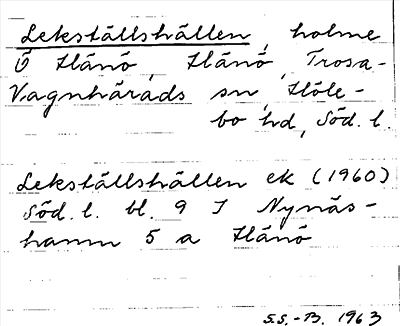 Lekställshällen, holme
Ö Hånö, Hånö, Trosa-
Vagnhärads sn, Höle-
bo hd, Söd. l.
Lekställshällen ek (1960)
Söd. l. bl. 9 I Nynäs-
hamn 5 a Hånö
S.S.-B. 1963